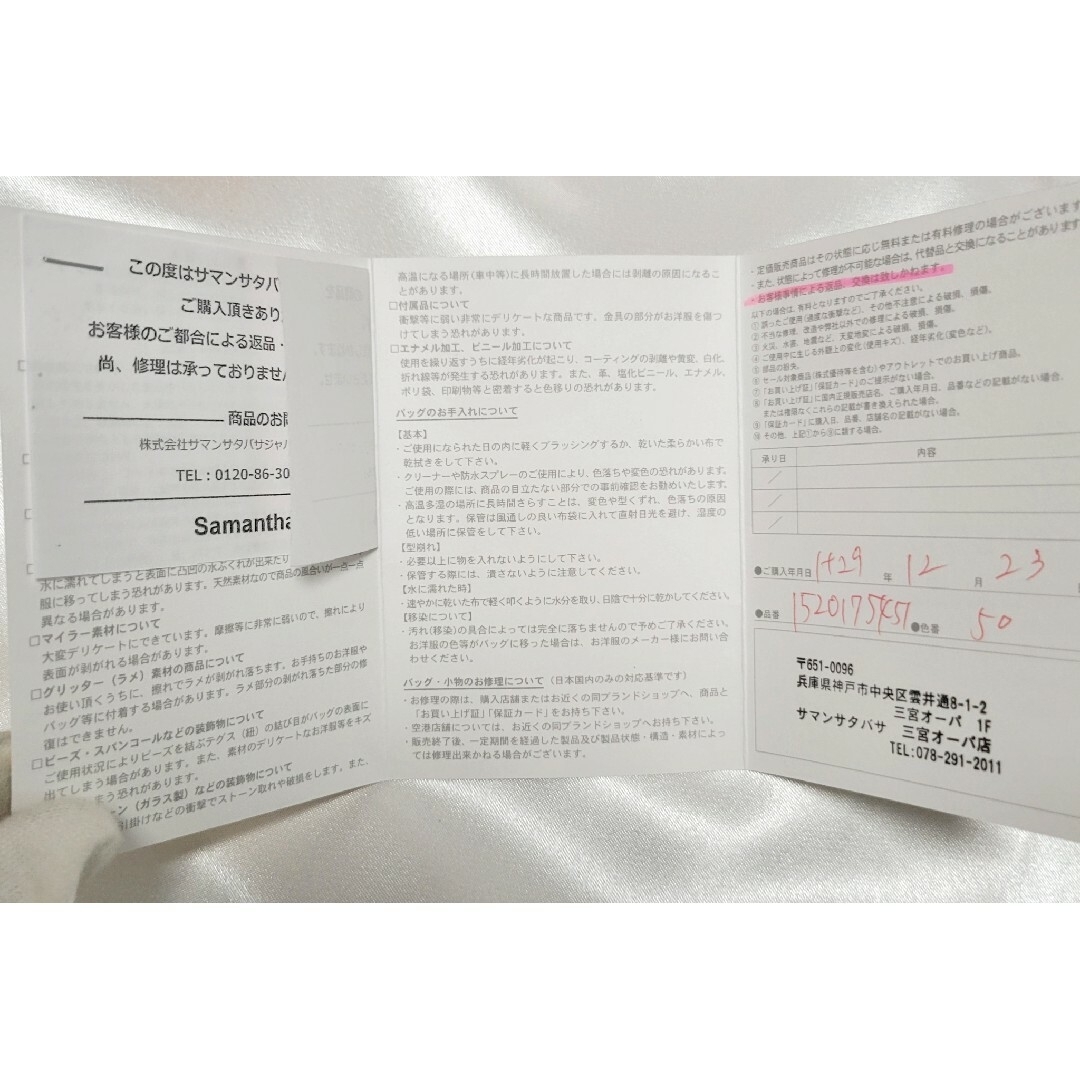 この度はサマンサタバ
ご購入頂きあり
お客様のご都合による返品・
尚、修理は承っておりません
商品のお問
株式会社サマンサタバサジャパ
TEL：0120-86-30
Samantha
水に濡れてしまうと表面に凸凹の水ぶくれが出来たり
服に移ってしまう恐れがあります。天然素材なので商品の風合いが一点一点
異なる場合があります。
□マイラー素材について
大変デリケートにできています。摩擦等に非常に弱いので、擦れにより
表面が剥がれる場合があります。
□グリッター（ラメ）素材の商品について
お使い頂くうちに、擦れでラメが剥がれ落ちます。お手持ちのお洋服や
バッグ等に付着する場合があります。ラメ部分の剥がれ落ちた部分の修
復はできません。
□ビーズ・スパンコールなどの装飾物について
ご使用状況によりビーズを結ぶテグス（紐）の結び目がバッグの表面に
出てしまう場合があります。また、素材のデリケートなお洋服等をキズ
まう恐れがあります。
ン（ガラス製）などの装飾物について
引掛けなどの衝撃でストーン取れや破損をします。また、
高温になる場所（車中等）に長時間放置した場合には剥離の原因になるこ
とがあります。
□付属品について
衝撃等に弱い非常にデリケートな商品です。金具の部分がお洋服を傷つ
けてしまう恐れがあります。
□エナメル加工、ビニール加工について
使用を繰り返すうちに経年劣化が起こり、コーティングの剥離や黄変、白化、
折れ線等が発生する恐れがあります。また、革、塩化ビニール、エナメル、
ポリ袋、印刷物等と密着すると色移りの恐れがあります。
バッグのお手入れについて
【基本】
・ご使用になられた日の内に軽くブラッシングするか、乾いた柔らかい布で
乾拭きをして下さい。
・クリーナーや防水スプレーのご使用により、色落ちや変色の恐れがあります。
ご使用の際には、商品の目立たない部分での事前確認をお勧めいたします。
・高温多湿の場所に長時間さらすことは、変色や型くずれ、色落ちの原因
となります。保管は風通しの良い布袋に入れて直射日光を避け、湿度の
低い場所に保管をして下さい。
【型崩れ】
・必要以上に物を入れないようにして下さい。
・保管する際には、潰さないように注意してください。
【水に濡れた時】
・速やかに乾いた布で軽く叩くように水分を取り、日陰で十分に乾かしてください。
【移染について】
・汚れ（移染）の具合によっては完全に落ちませんので予めご了承ください。
お洋服の色等がバッグに移った場合は、お洋服のメーカー様にお問い合
わせください。
バッグ・小物のお修理について（日本国内のみの対応基準です）
・お修理の際は、購入店舗またはお近くの同ブランドショップへ、商品と
「お買い上げ証」「保証カード」をお持ち下さい。
・空港店舗については、お近くの同ブランドショップへお持ち下さい。
・販売終了後、一定期間を経過した製品及び製品状態・構造・素材によっ
ては修理出来かねる場合がございます。
・定価販売商品はその状態に応じ無料または有料修理の場合がございます
・また、状態によって修理が不可能な場合は、代替品と交換になることがあります
・お客様事情による返品、交換は致しかねます。
以下の場合は、有料となりますのでご了承ください。
①誤ったご使用（過度な衝撃など）、その他不注意による破損、損傷。
②不当な修理、改造や弊社以外での修理による破損、損傷。
③火災、水害、地震など、天変地変による破損、損傷。
④ご使用中に生じる外観上の変化（使用キズ）、経年劣化（変色など）。
⑤部品の紛失。
⑥セール対象商品（株式優待等を含む）やアウトレットでのお買い上げ商品。
⑦「お買い上げ証」「保証カード」のご提示がない場合。
⑧「お買い上げ証」に国内正規販売店名、ご購入年月日、品番などの記載がない場合、
または権限なくこれらの記載が書き換えられた場合。
⑨「保証カード」に購入日、品番、店舗名の記載がない場合。
⑩その他、上記①から⑨に類する場合。
承り日 内容
／
／
／
●ご購入年月日 H29 年 12 月 23
●品番 ●色番 50
〒651-0096
兵庫県神戸市中央区雲井通8-1-2
三宮オーパ 1F
サマンサタバサ 三宮オーパ店
TEL:078-291-2011